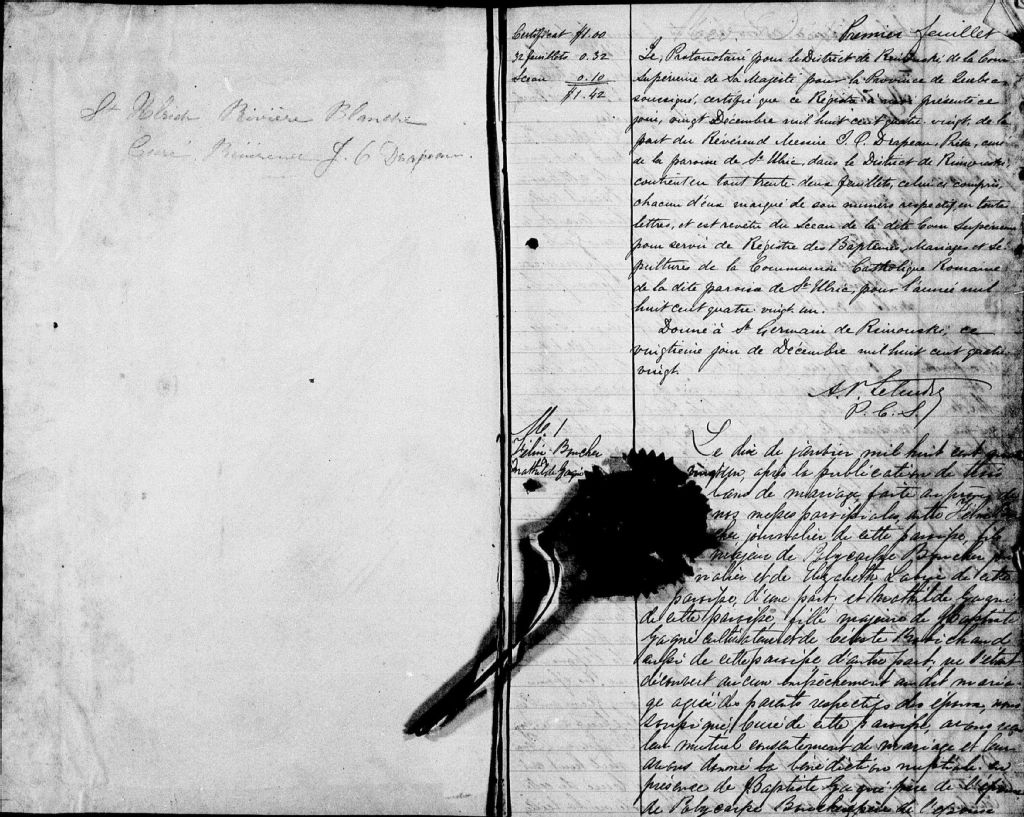 St Ulrich Rivière Blanche
Curé, Révérend J. C Drapeau.
Certificat $1.00
32 feuillets 0.32
Sceau 0.10
$1.42
Premier feuillet
Je, Protonotaire pour le District de Rimouski de la Cour
Supérieure de Sa Majesté pour la Province de Québec
soussigné, certifie que ce Registre à moi présenté ce
jour, vingt Décembre mil huit cent quatre vingt, de la
part du Révérend Messire J. C. Drapeau, Ptre, curé
de la paroisse de St Ulric, dans le District de Rimouski,
contient en tout trente deux feuillets, celui ci compris,
chacun d'eux marqué de son numéro respectif, en toutes
lettres, et est revêtu du Sceau de la dite Cour Supérieure
pour servir de Régistre des Baptêmes, Mariages et Sé-
pultures de la Communion Catholique Romaine
de la dite paroisse de St Ulric, pour l'année mil
huit cent quatre vingt un.
Donné à St Germain de Rimouski, ce
vingtième jour de Décembre mil huit cent quatre
vingt.
P. C. S.
M. 1
Boucher
Mathilde Gagné
Le dix de janvier mil huit cent quatre
vingt un, après la publication de trois
bans de mariage faite au prône de
nos messes paroissiales, entre
journalier de cette paroisse, fils
majeur de Polycarpe Boucher
nalier et de Elizabeth de cette
paroisse, d'une part, et Mathilde Gagné
de cette paroisse, fille majeure de Baptiste
Gagné cultivateur et de
aussi de cette paroisse d'autre part; ne s'étant
découvert aucun empêchement au dit maria-
ge agréé des parents respectifs des époux, nous
soussigné, Curé de cette paroisse, avons reçu
leur mutuel consentement de mariage et leur
avons donné la bénédiction nuptiale en
présence de Baptiste Gagné père de l'épouse
de Polycarpe Boucher père de l'époux